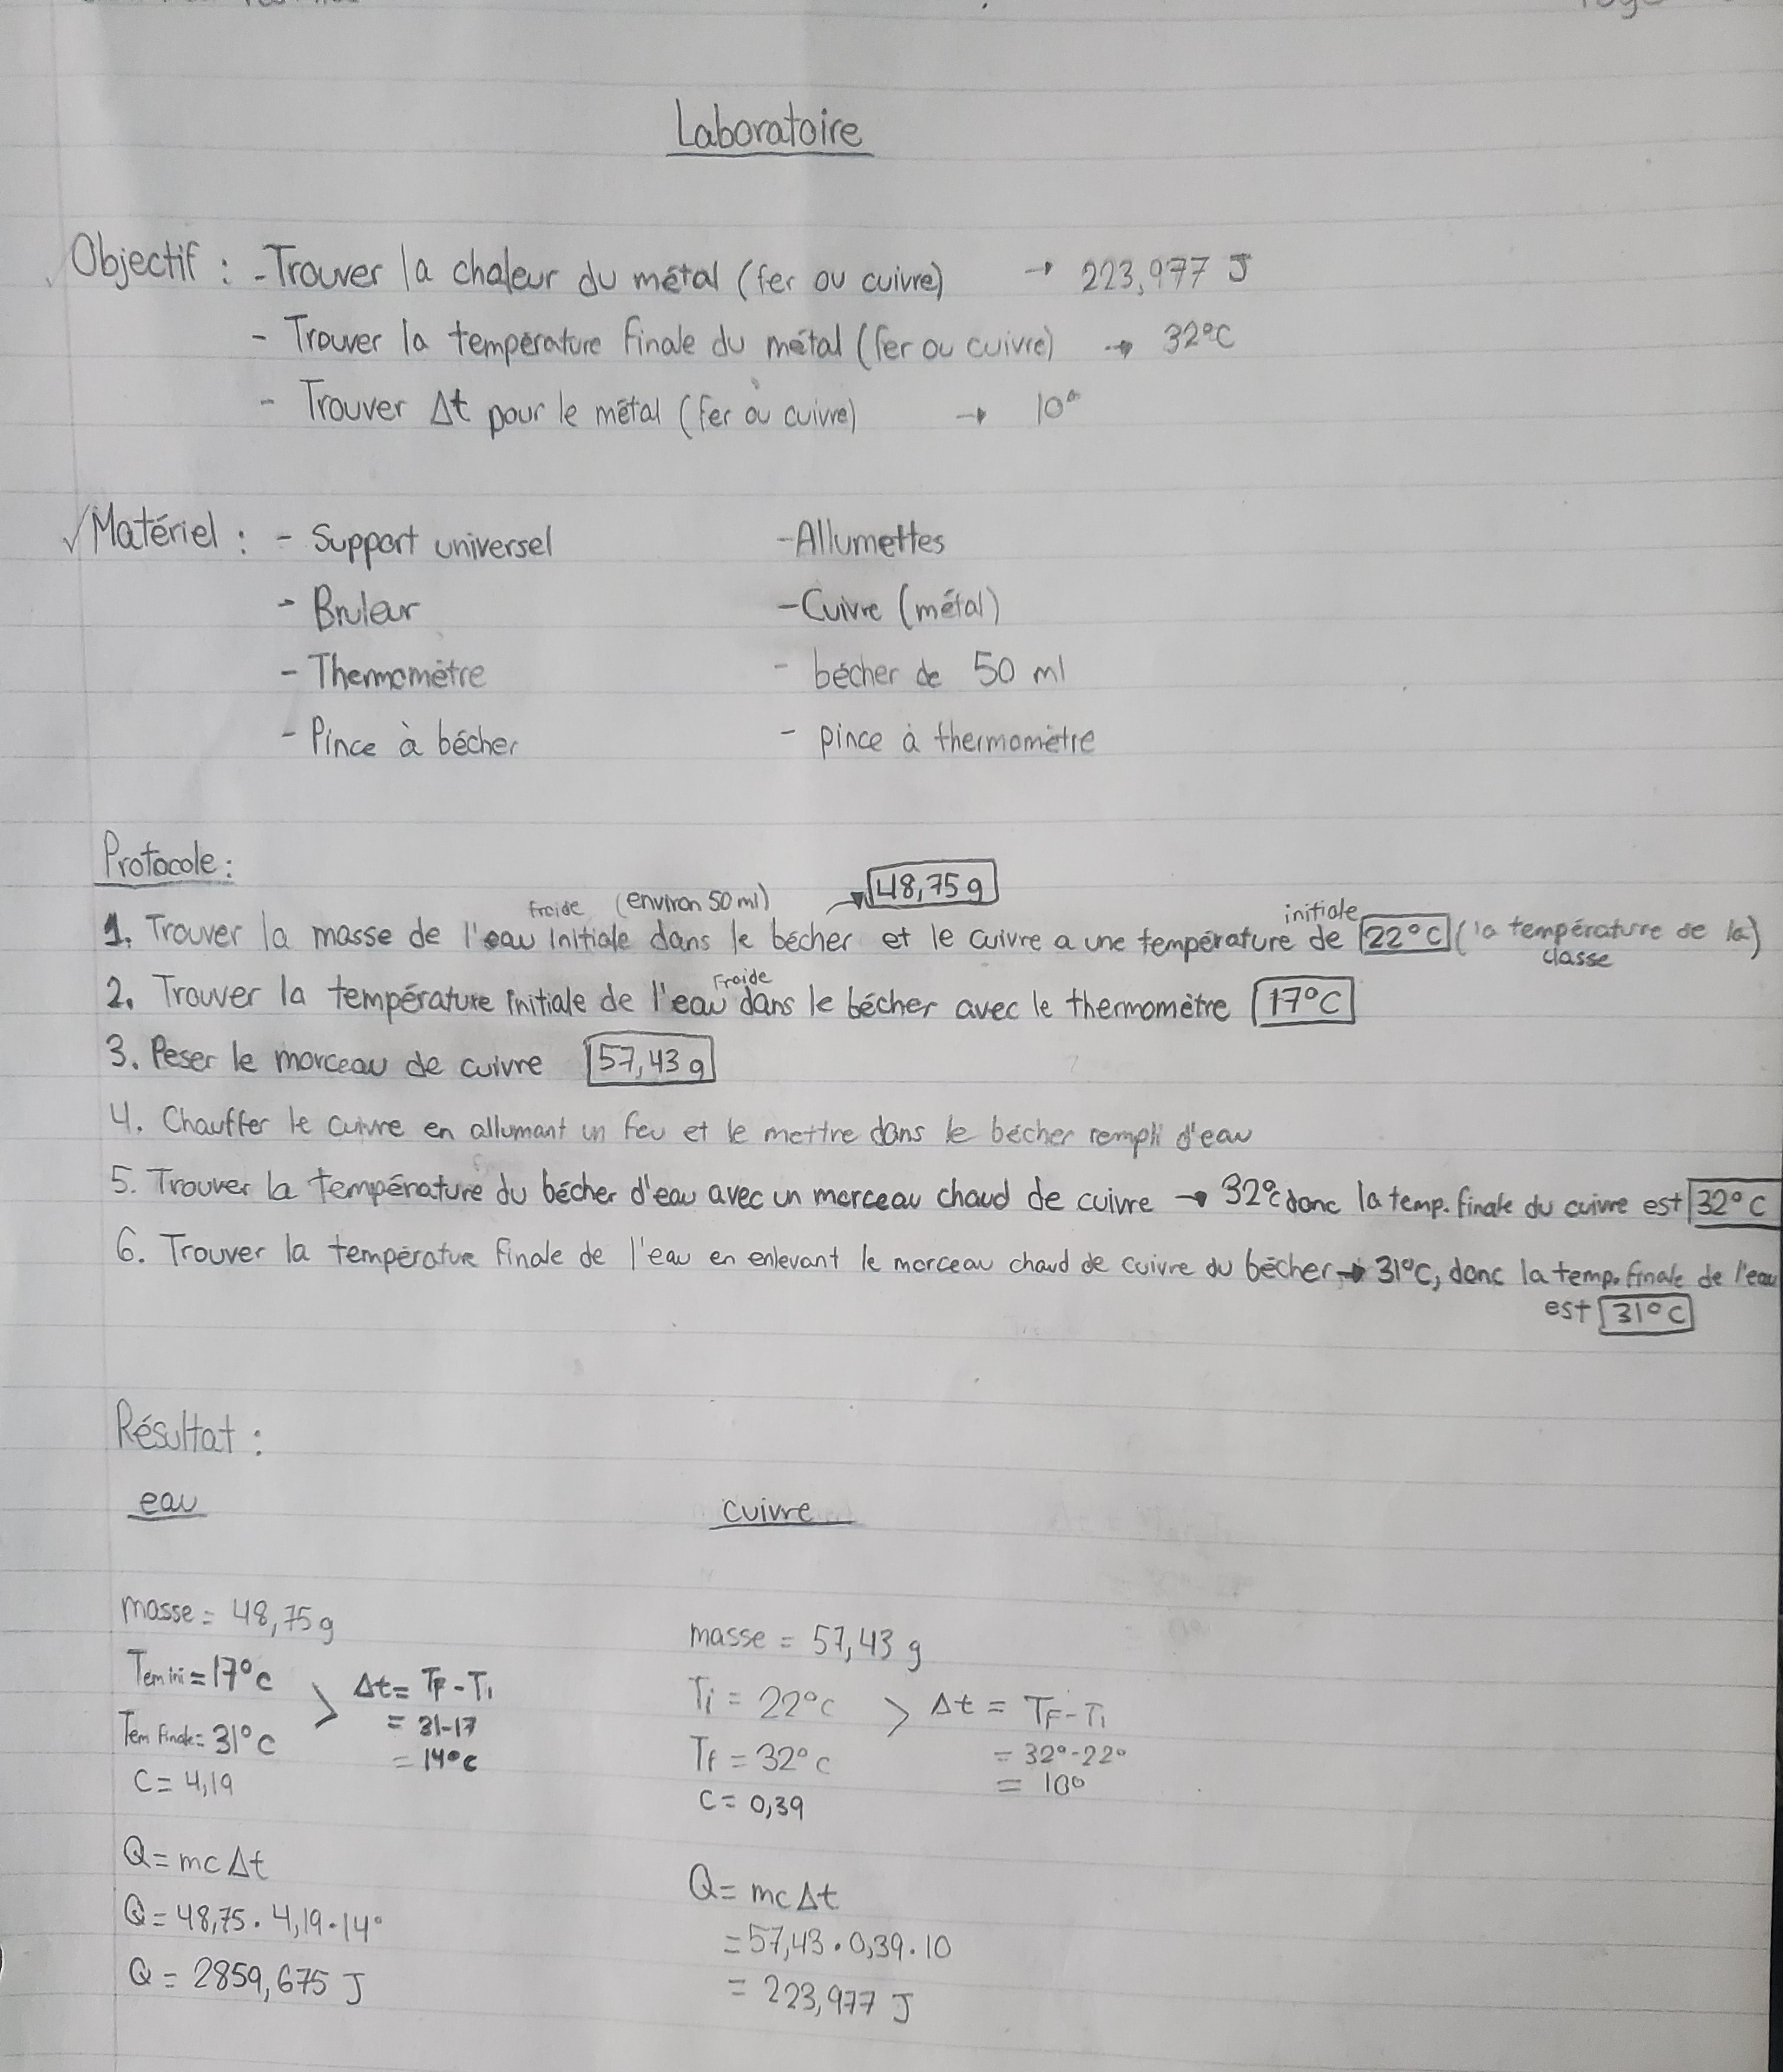 Laboratoire
Objectif : - Trouver la chaleur du métal (fer ou cuivre) → 223,977 J
- Trouver la température finale du métal (fer ou cuivre) → 32°C
- Trouver Δt pour le métal (fer ou cuivre) → 10°
√ Matériel : - Support universel - Allumettes
- Bruleur - Cuivre (métal)
- Thermomètre - bécher de 50 ml
- Pince à bécher - pince à thermomètre
Protocole :
froide (environ 50 ml) → 48,75 g initiale
1. Trouver la masse de l'eau initiale dans le bécher et le cuivre a une température de 22°C (la température de la)
classe
froide
2. Trouver la température initiale de l'eau dans le bécher avec le thermomètre 17°C
3. Peser le morceau de cuivre 57,43 g
4. Chauffer le cuivre en allumant un feu et le mettre dans le bécher rempli d'eau
5. Trouver la température du bécher d'eau avec un morceau chaud de cuivre → 32°c donc la temp. finale du cuivre est 32°C
6. Trouver la température finale de l'eau en enlevant le morceau chaud de cuivre du bécher → 31°C, donc la temp. finale de l'eau
est 31°C
Résultat :
eau cuivre
masse = 48,75 g masse = 57,43 g
Tem ini = 17°c > Δt = TF - Ti Ti = 22°c > Δt = TF - Ti
= 31-17 = 32° - 22°
Tem finale = 31°c = 14°c Tf = 32°c = 10°
C = 4,19 C = 0,39
Q = mcΔt Q = mcΔt
Q = 48,75 · 4,19 · 14° = 57,43 · 0,39 · 10
Q = 2859,675 J = 223,977 J